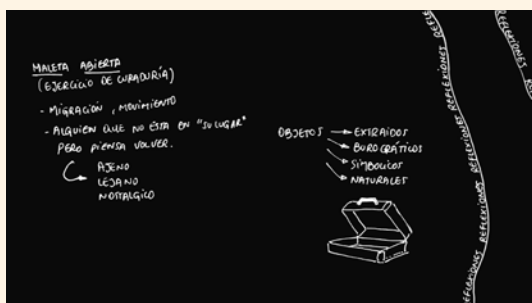 MALETA ABIERTA
(EJERCICIO DE CURADURÍA)
- MIGRACIÓN, MOVIMIENTO
- ALGUIEN QUE NO ESTA EN "SU LUGAR"
PERO PIENSA VOLVER.
AJENO
LEJANO
NOSTALGICO
OBJETOS → EXTRAIDOS
BUROCRÁTICOS
SIMBOLICOS
NATURALES
REFLEXIONES REFLEXIONES REFLEXIONES REFLEXIONES REFLEXIONES REFLEXIONES
REFLEXIONES